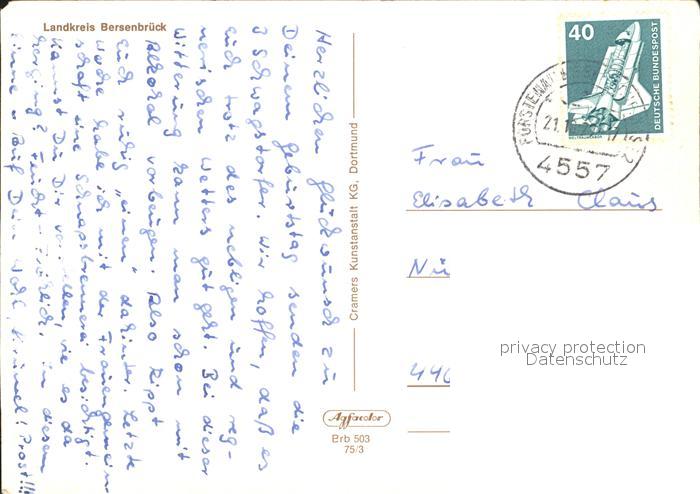 Landkreis Bersenbrück
Herzlichen Glückwunsch zu
Deinem Geburtstag senden die
3 Schwagstorfer. Wir hoffen, daß es
Euch trotz des nebligen und reg-
nerischen Wetters gut geht. Bei dieser
Witterung kann man schon mit
Alkohol vorbeugen. Also kippt
Euch ruhig „einen" dahinter. Letzte
Woche habe ich mit der Frauengemein
schaft eine Schnapsbrennerei besichtigt.
Kannst Du Dir vorstellen, wie es da
herging? Feucht-Fröhlich, in diesem
Sinne: Auf Dein Wohl, Prost!!!
Cramers Kunstanstalt KG, Dortmund
Agfacolor
Brb 503
75/3
40
DEUTSCHE BUNDESPOST
WELTRAUMLABOR
FÜRSTENAU
21.1
4557
Frau
Elisabeth Claus
Nü
440
privacy protection
Datenschutz